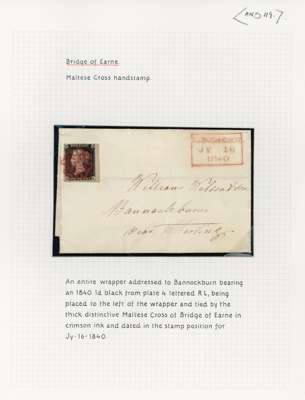 Bridge of Earne
Maltese Cross handstamp.
JY 16
1840
William Wilson
Bannockburn
near Stirling
An entire wrapper addressed to Bannockburn bearing
an 1840 1d black from plate 4 lettered R L, being
placed to the left of the wrapper and tied by the
thick distinctive Maltese Cross of Bridge of Earne in
crimson ink and dated in the stamp position for
Jy-16-1840.